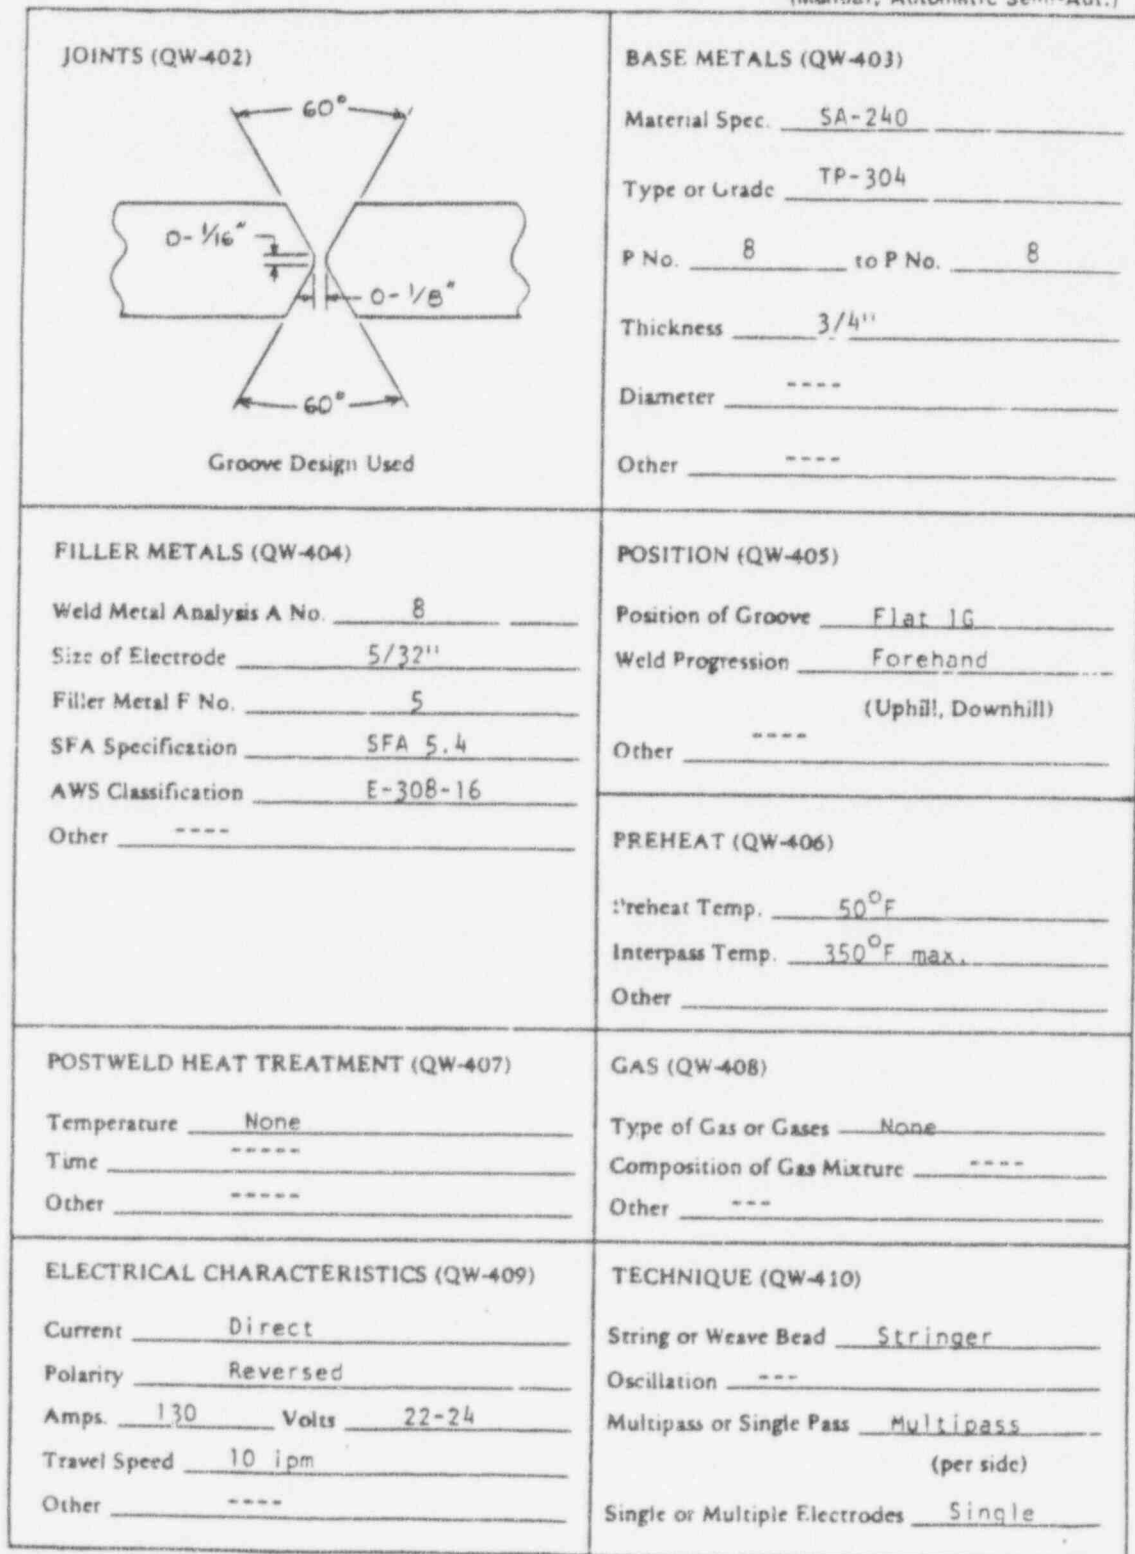 JOINTS (QW-402)
60°
0-1/16"
0-1/8"
60°
Groove Design Used
BASE METALS (QW-403)
Material Spec. SA-240
Type or Grade TP-304
P No. 8 to P No. 8
Thickness 3/4"
Diameter ----
Other ----
FILLER METALS (QW-404)
Weld Metal Analysis A No. 8
Size of Electrode 5/32"
Filler Metal F No. 5
SFA Specification SFA 5.4
AWS Classification E-308-16
Other ----
POSITION (QW-405)
Position of Groove Flat 1G
Weld Progression Forehand
(Uphill, Downhill)
Other ----
PREHEAT (QW-406)
Preheat Temp. 50°F
Interpass Temp. 350°F max.
Other
POSTWELD HEAT TREATMENT (QW-407)
Temperature None
Time -----
Other -----
GAS (QW-408)
Type of Gas or Gases None
Composition of Gas Mixture ----
Other ---
ELECTRICAL CHARACTERISTICS (QW-409)
Current Direct
Polarity Reversed
Amps. 130 Volts 22-24
Travel Speed 10 ipm
Other ----
TECHNIQUE (QW-410)
String or Weave Bead Stringer
Oscillation ---
Multipass or Single Pass Multipass
(per side)
Single or Multiple Electrodes Single